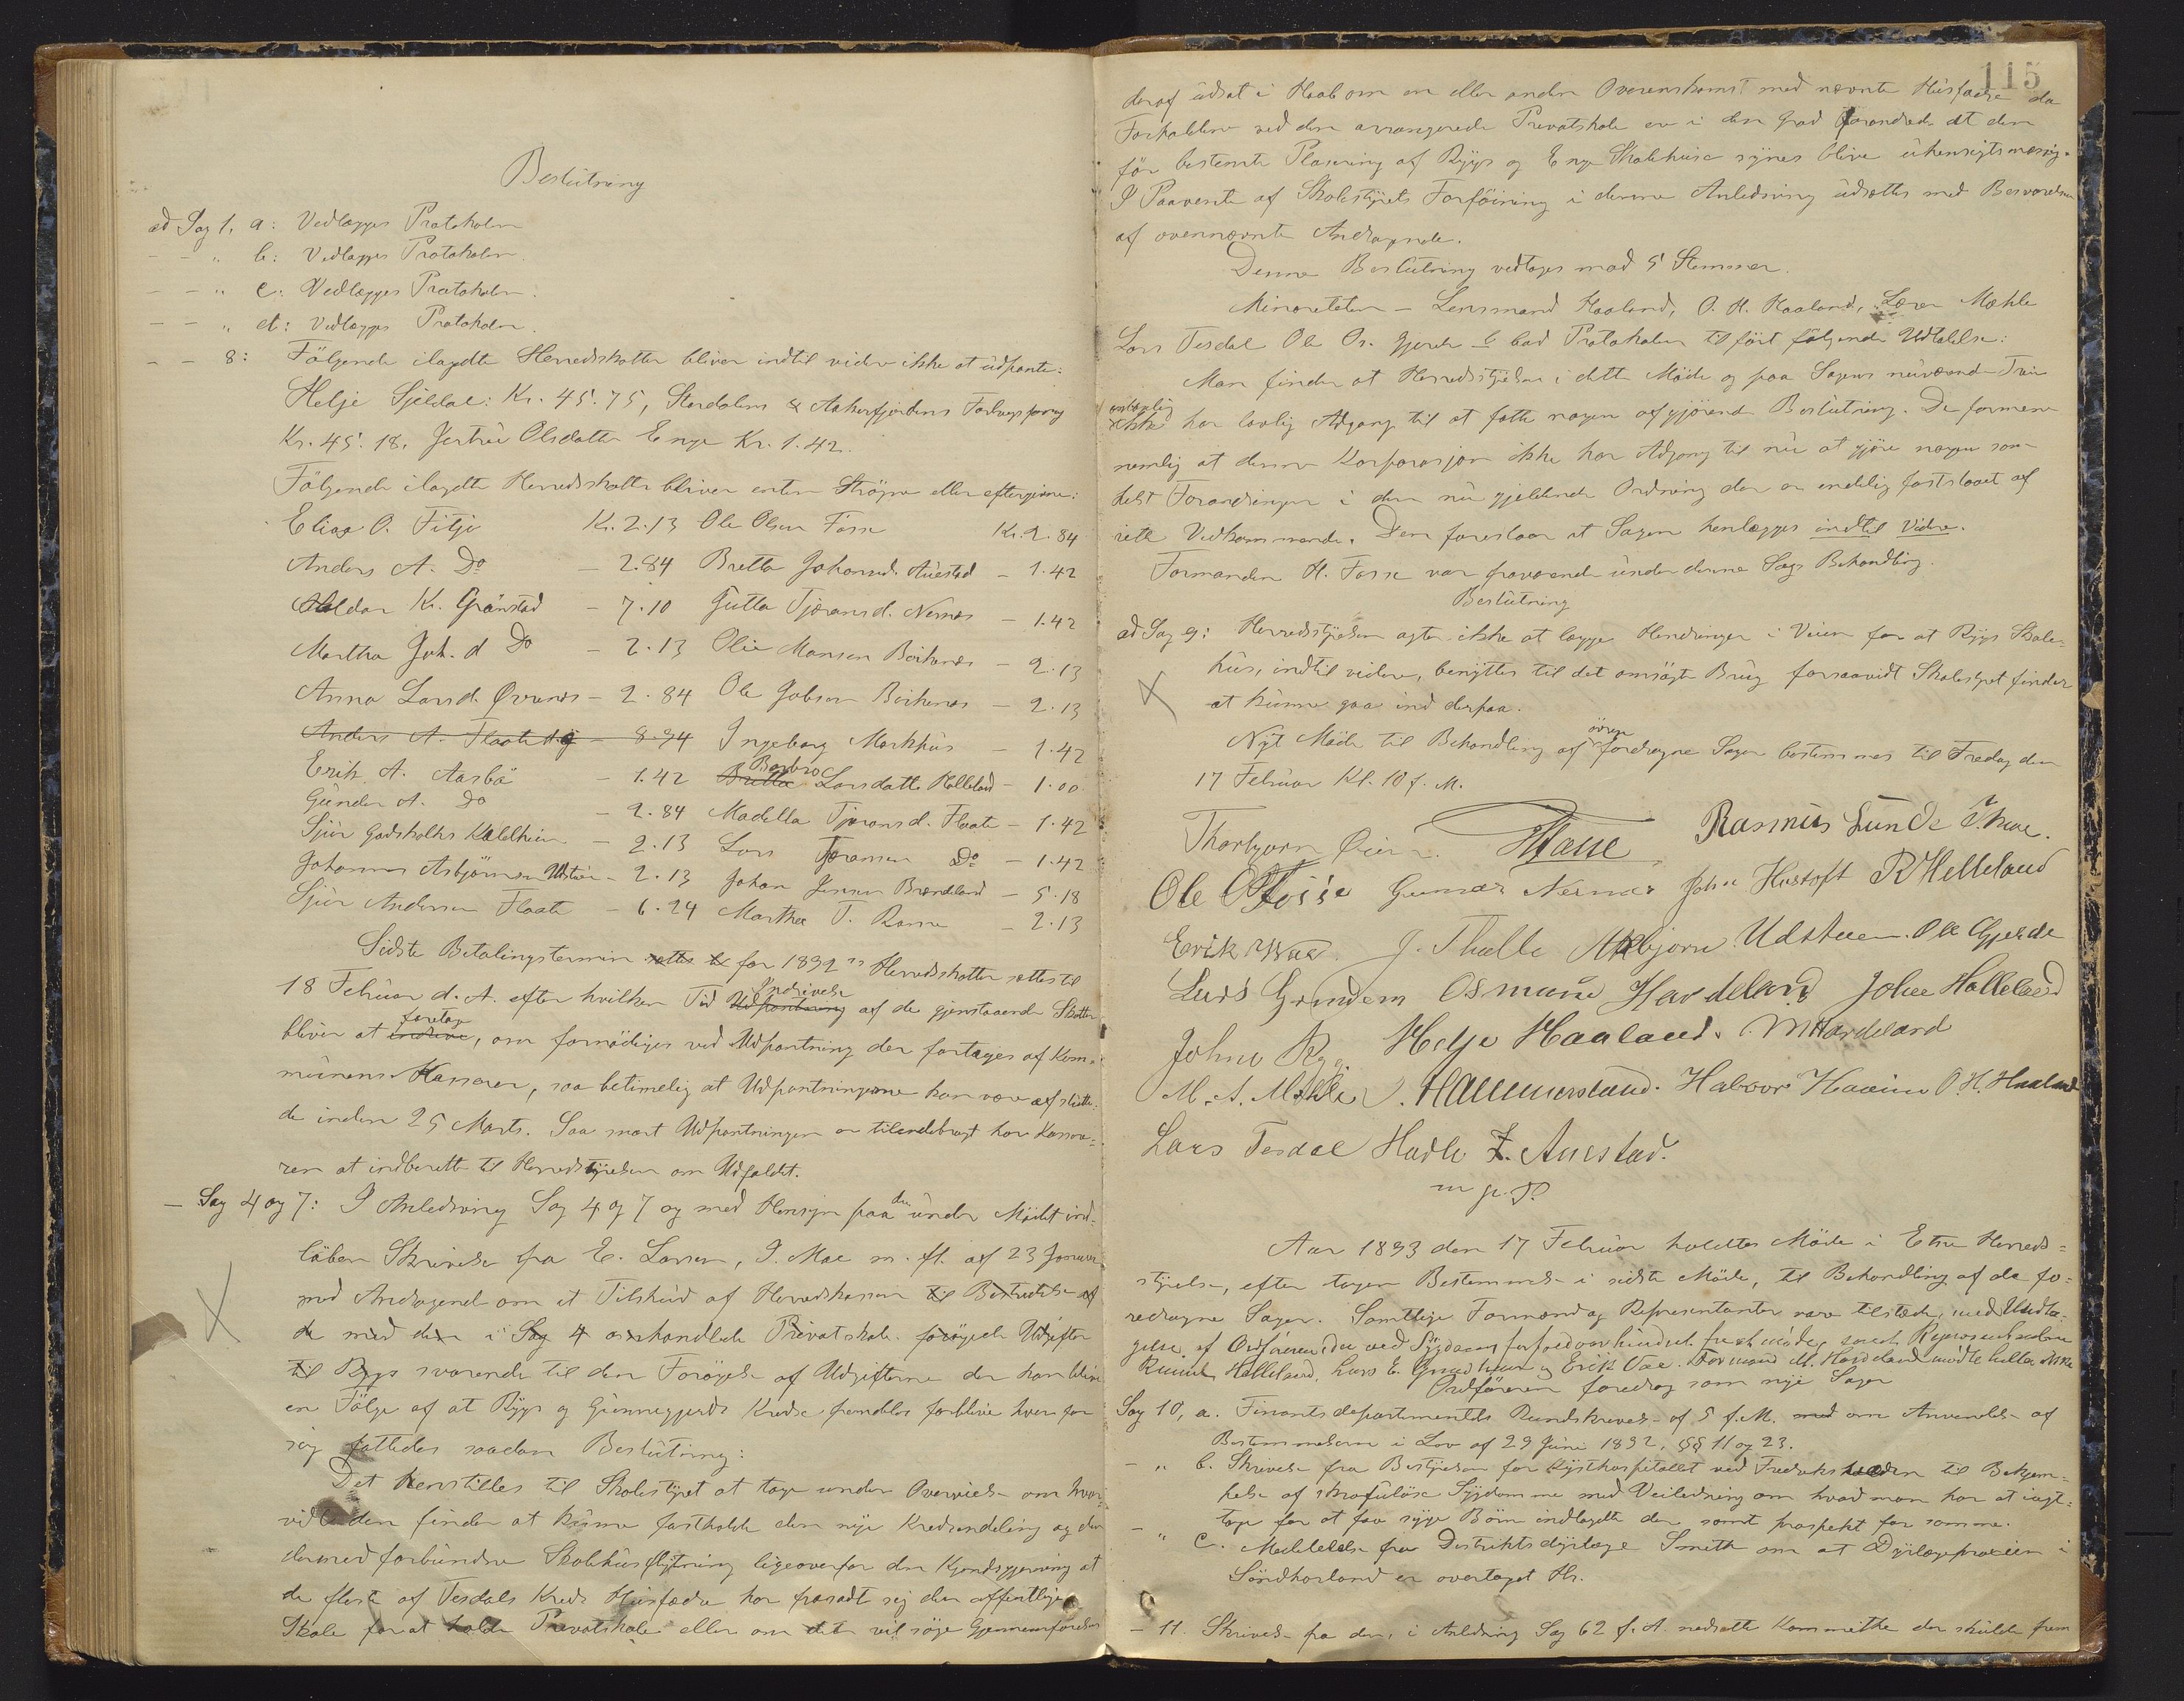 Beslutning
ad Sag 1, a: Vedlægges Protokolen
- - " b: Vedlægges Protokolen.
- - " c: Vedlægges Protokolen.
- - " d: Vedlægges Protokolen.
- - 8: Følgende ilagdte Herredsskatter bliver indtil videre ikke at udpante:
Helje Sjeldal: Kr. 45.75, Stordalens & Aakrefjordens
Kr. 45.18, Jertrue Olsdatter Enge Kr. 1.42.
Følgende ilagdte Herredsskatter bliver enten Strøgne eller eftergivne:
Elias O. Fitje Kr. 2.13 Ole Olsen Fosse Kr. 2.84
Anders A. Do - 2.84 Britta Johannesd. Auestad - 1.42
Haldor K. Grønstad - 7.10 Gutta Tjøransd. Nernes - 1.42
Martha Joh.d Do - 2.13 Olie Monsen Birkenes - 2.13
Anna Larsd. Øvrenes - 2.84 Ole Jobsen Birkenes - 2.13
Anders A. Flaate - 8.94 Ingeborg Markhus - 1.42
Erik A. Aasbø - 1.42 Britta Barbro Larsdatter Helleland - 1.00
Gunder A. Do - 2.84 Madella Tjøransd. Flaate - 1.42
Sjur Godskalks Kaldheim - 2.13 Lars Tjøransen Do - 1.42
Johannes Asbjørnsen Udstuen - 2.13 Johan Jensen Brændland - 5.18
Sjur Andersen Flaate - 6.24 Martha T. Ramne - 2.13
Sidste Betalingstermin sættes til for 1892's Herredsskatter sættes til
18 Februar d. A. efter hvilken Tid Udpantning Indrivelse af de gjenstaaende Skatter
bliver at indrive foretage, om fornødiges ved Udpantning der foretages af Kom-
munens Kasserer, saa betimelig at Udpantningerne kan være afslutte-
de inden 25 Marts. Saa snart Udpantningen er tilendebragt har Kassere-
ren at indberette til Herredstyrelsen om Udfaldet.
- Sag 4 og 7: I Anledning Sag 4 og 7 og med Hensyn paa den under Mødet ind-
løben Skrivelse fra E. Larsen, I. Mae m. fl. af 23 Januar
med Andragende om et Tilskud af Herredskassen til Bestridelse af
de med den i Sag 4 omhandlede Privatskole forøgede Udgifter
til Rygs svarende til den Forøgelse af Udgifterne der kan blive
en Følge af at Rygs og Gunnegjerds Kredse fremdeles forblive hver for
sig fattedes saadan Beslutning:
Det henstilles til Skolestyret at tage under Overveielse om hvor-
vidt den finder at kunne fastholde den nye Kredsindeling og den
dermed forbundne Skolehusflytning ligeoverfor den Kjendsgjerning at
de fleste af Tesdals Kreds Husfædre har frasadt sig den offentlige
Skole for at holde Privatskole eller om det vil søge Gjennemførelsen
115
deraf udsat i Haab om en eller anden Overenskomst med nævnte Husfædre da
Forholdene ved den arrangerede Privatskole er i den Grad forandrede at den
før bestemte Plasering af Rygs og Enge Skolehuse synes blive uhensigtsmæssig.
I Paavente af Skolestyrets Forføining i denne Anledning udsættes med Besvarelsen
af ovennævnte Andragende.
Denne Beslutning vedtoges mod 5 Stemmer.
Minoriteten - Lensmand Haaland, O. H. Haaland, Lærer Mæhle
Lars Tesdal Ole Os. Gjerde bad Protokolen tilført følgende Udtalelse:
Man finder at Herredsstyrelsen i dette Møde og paa Sagens nuværende Trin
ikke har lovlig Adgang til at fatte nogen afgjørende Beslutning. De formener
nemlig at denne Korporasjon ikke har Adgang til nu at gjøre nogen som-
helst Forandringer i den nu gjeldende Ordning der er endelig fastslaaet af
rette Vedkommende. Den foreslaar at Sagen henlægges indtil Videre.
Formanden H. Fosse var fraværende under denne Sags Behandling.
Beslutning
ad Sag 9: Herredsstyrelsen agter ikke at lægge Hindringer i Veien for at Rygs Skole-
hus, indtil videre, benyttes til det omsøgte Brug forsaavidt Skolestyret finder
at kunne gaa ind derpaa.
Nyt Møde til Behandling af øvrige fordragne Sager bestemmes til Fredag den
17 Februar Kl. 10 f. M.
Thorbjørn Øien. HFosse Rasmus Lunde I. Moe.
Ole O Fosse Gunnar Nernes John Hustoft R Helleland
Erik Vae. J. Thulle Asbjørn Udstuen. Ole Gjerde
Lars Grindem Osmund Hardeland Johne Halleland
Johne Ryg. Helje Haaland. M Hardeland
M. A. Mæhle J. Hammersland. Halvor Haaim O. H. Haaland
Lars Tesdal Hadle T. Auestad.
m. p. P.
Aar 1893 den 17 Februar holdtes Møde i Etne Herreds-
styrelse, efter tagen Bestemmelse i sidste Møde, til Behandling af de fo-
redragne Sager. Samtlige Formænd og Representanter vare tilstede, med Undta-
gelse af Ordføreren, der ved Sygdoms forfald var hindret fra at møde, samt Representanterne
Rasmus Helleland, Lars E. Grindheim og Erik Vae. Formand M. Hardeland mødte heller ikke
Ordføreren foredrog som nye Sager
Sag 10, a. Finantsdepartementets Rundskrivelse af 5 f. M. med om Anvendelse af
Bestemmelserne i Lov af 29 Juni 1892, §§ 11 og 23.
- " b. Skrivelse fra Bestyrelsen for Kysthospitalet ved Fredriksværn til Bekjem-
pelse af skrofuløse Sygdomme med Veiledning om hvad man har at iagt-
tage for at faa syge Børn indlagdte der samt prospekt for samme.
- " c. Meddelelse fra Distriktsdyrlæge Smith om at Dyrlægepraxisen i
Søndhorland er overtaget Hr.
- 11. Skrivelse fra den, i Anledning Sag 62 f. A. nedsatte Kommitte der skulde frem